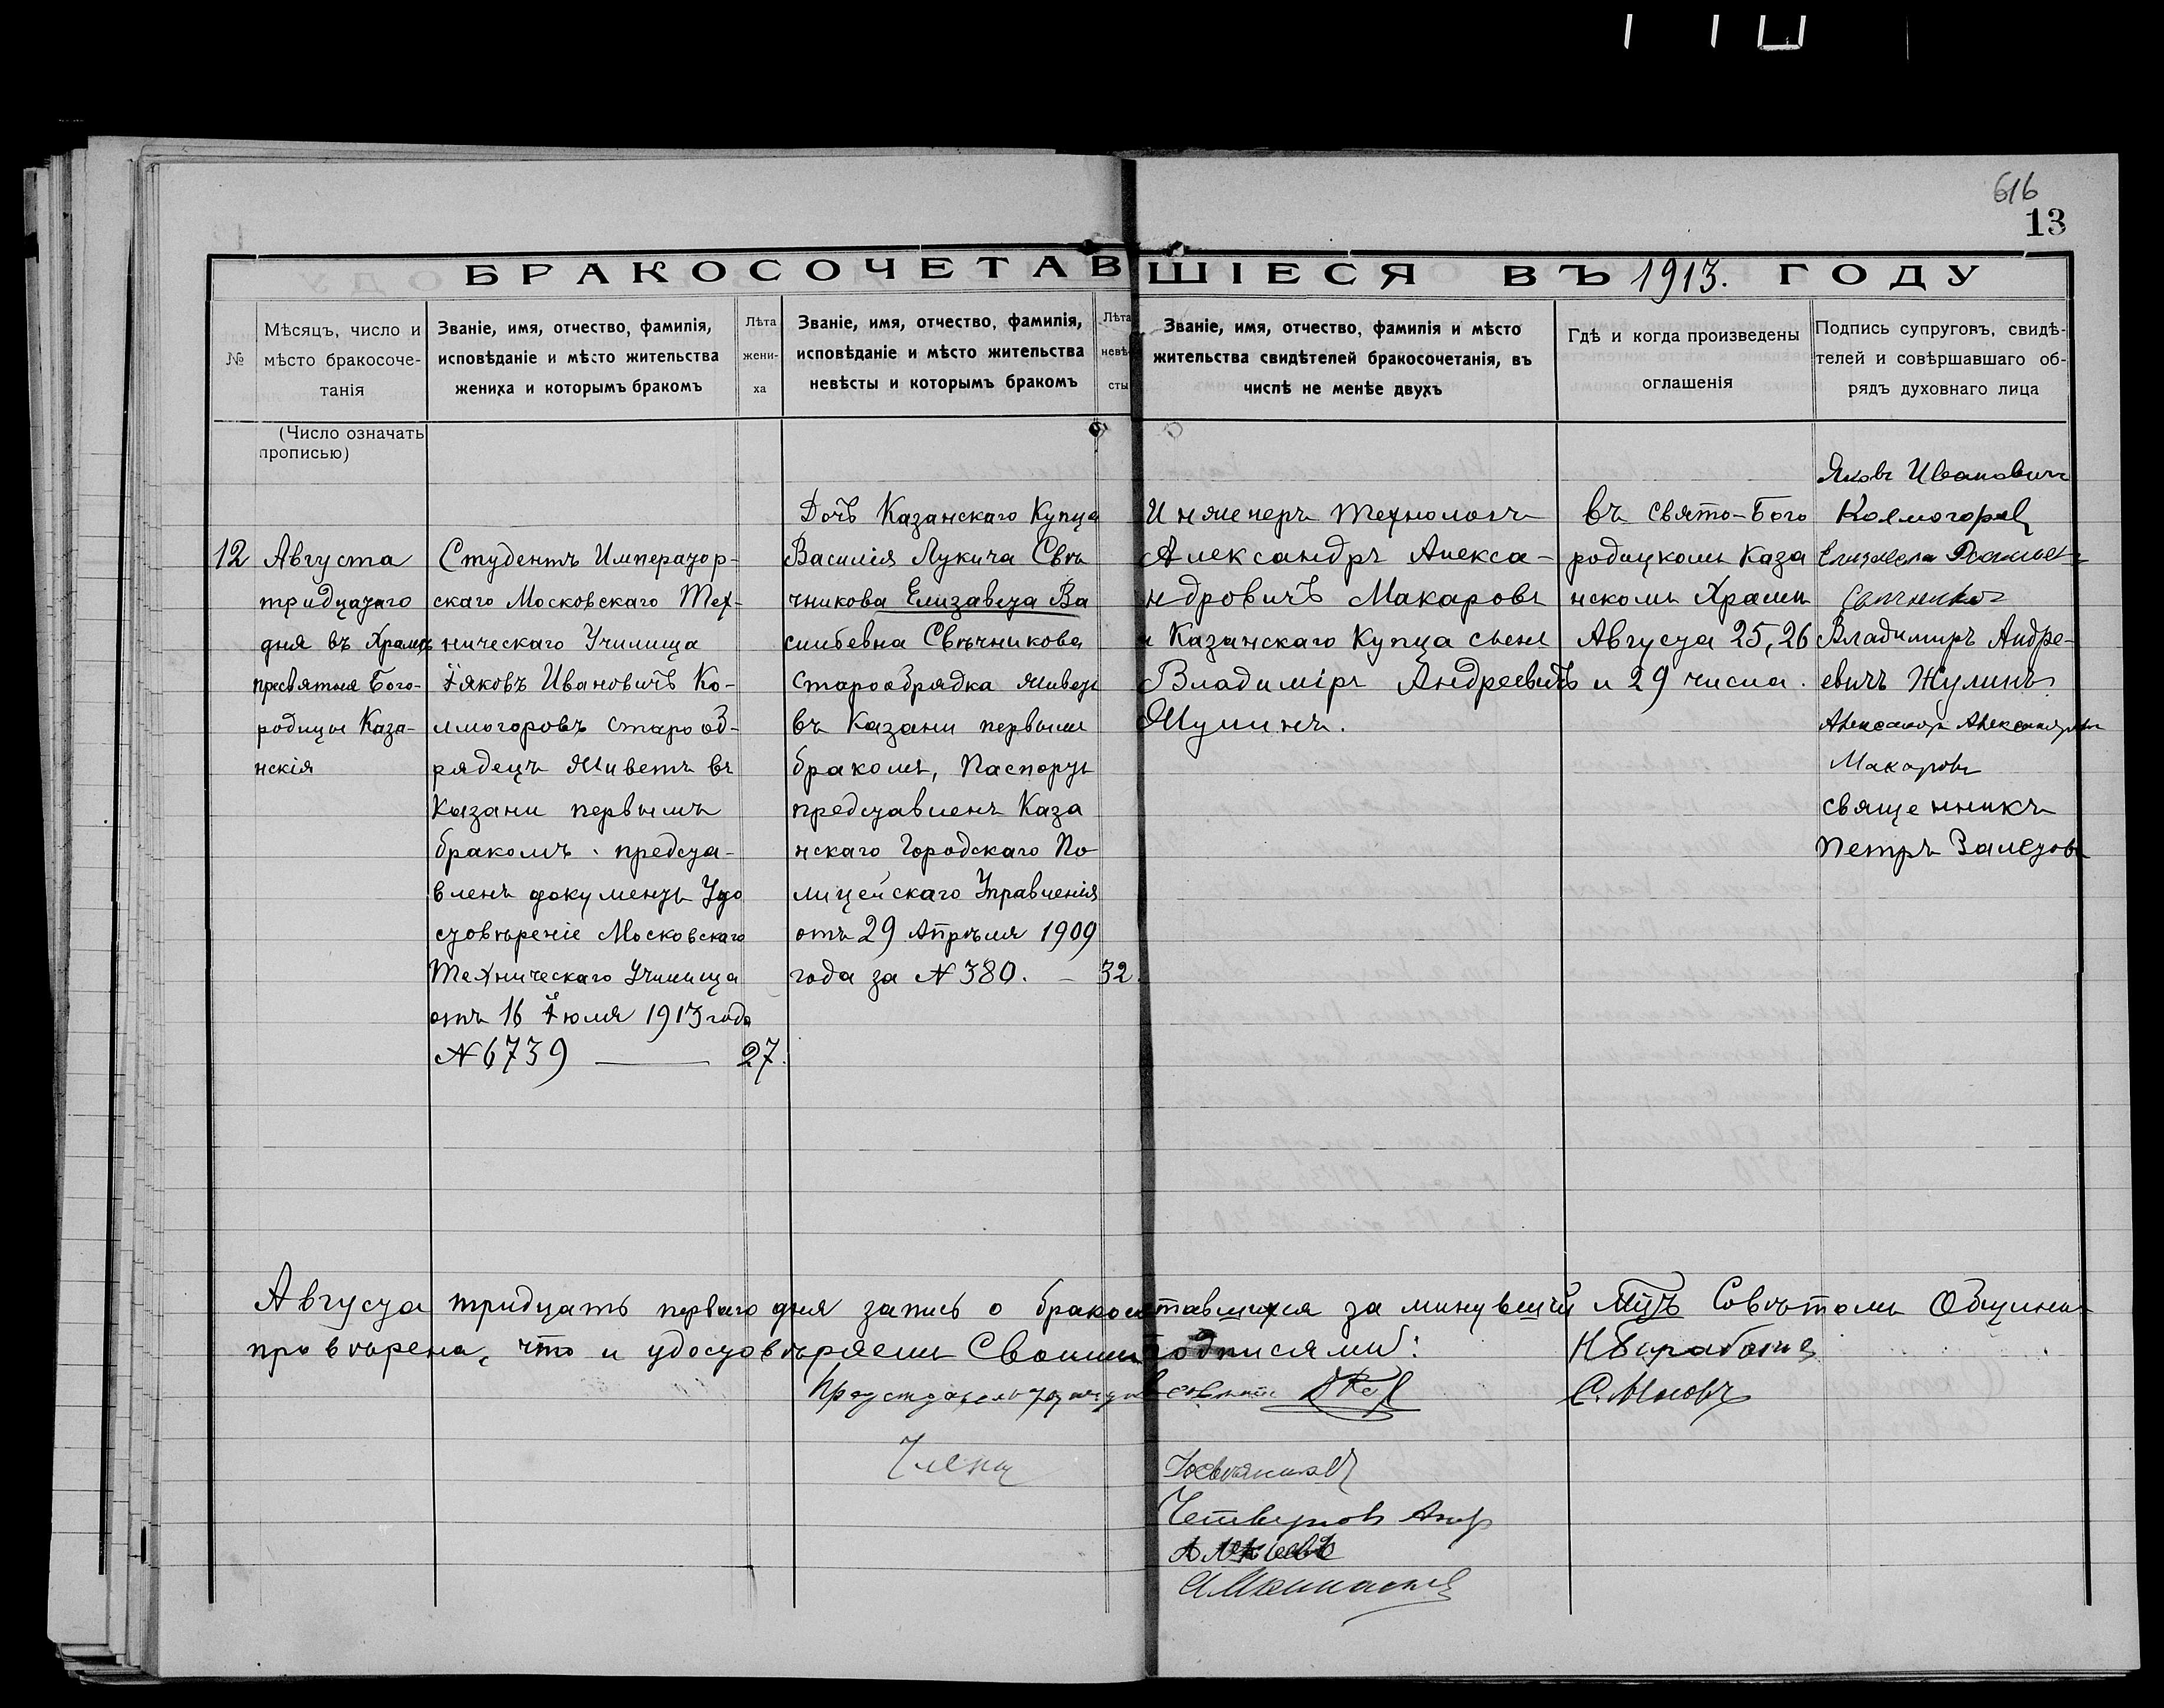 616
13
БРАКОСОЧЕТАВШІЕСЯ ВЪ 1913. ГОДУ
№
Мѣсяцъ, число и
мѣсто бракосоче-
танія
Званіе, имя, отчество, фамилія,
исповѣданіе и мѣсто жительства
жениха и которымъ бракомъ
Лѣта
жени-
ха
Званіе, имя, отчество, фамилія,
исповѣданіе и мѣсто жительства
невѣсты и которымъ бракомъ
Лѣта
невѣ-
сты
Званіе, имя, отчество, фамилія и мѣсто
жительства свидѣтелей бракосочетанія, въ
числѣ не менѣе двухъ
Гдѣ и когда произведены
оглашенія
Подпись супруговъ, свидѣ-
телей и совѣршавшаго об-
рядъ духовнаго лица
(Число означать
прописью)
12
Августа
тридцатаго
дня въ Храмѣ
пресвятыя Бого-
родицы Каза-
нскія
Студентъ Император-
скаго Московскаго Тех-
ническаго Училища
Іяковъ Ивановичъ Ко-
лмогоровъ старооб-
рядецъ Живетъ въ
Казани первымъ
бракомъ. предста-
вленъ документъ Удо
стовѣреніе Московскаго
Техническаго Училища
отъ 16 Іюля 1913 года
№ 6739 — 27.
Дочь Казанскаго Купца
Василія Лукича Свѣ
чникова Елизавета Ва
сильевна Свѣчникова
Старообрядка Живетъ
въ Казани первымъ
бракомъ, Паспортъ
представленъ Каза
нскаго Городскаго По
лицейскаго Управленія
отъ 29 Апрѣля 1909
года за № 380. — 32.
Инженеръ Технологъ
Александръ Алекса-
ндровичъ Макаровъ
и Казанскаго Купца сынъ
Владиміръ Андреевичъ
Жулинъ.
въ Свято-Бого
родицкомъ Каза
нскомъ Храмѣ
Августа 25, 26
и 29 числа.
Яковъ Ивановичъ
Колмогоровъ
Елизавета
Свѣчникова
Владимиръ Андре-
евичъ Жулинъ
Александръ Александровъ
Макаровъ
священникъ
Петръ Залетовъ
Августа тридцать перваго дня запись о бракосочетавшихся за минувшій Мцъ Совѣтомъ Общины
провѣрена, что и удостовѣряемъ Своими подписями:
Предсѣдатель
Члены
С.
Четверговъ